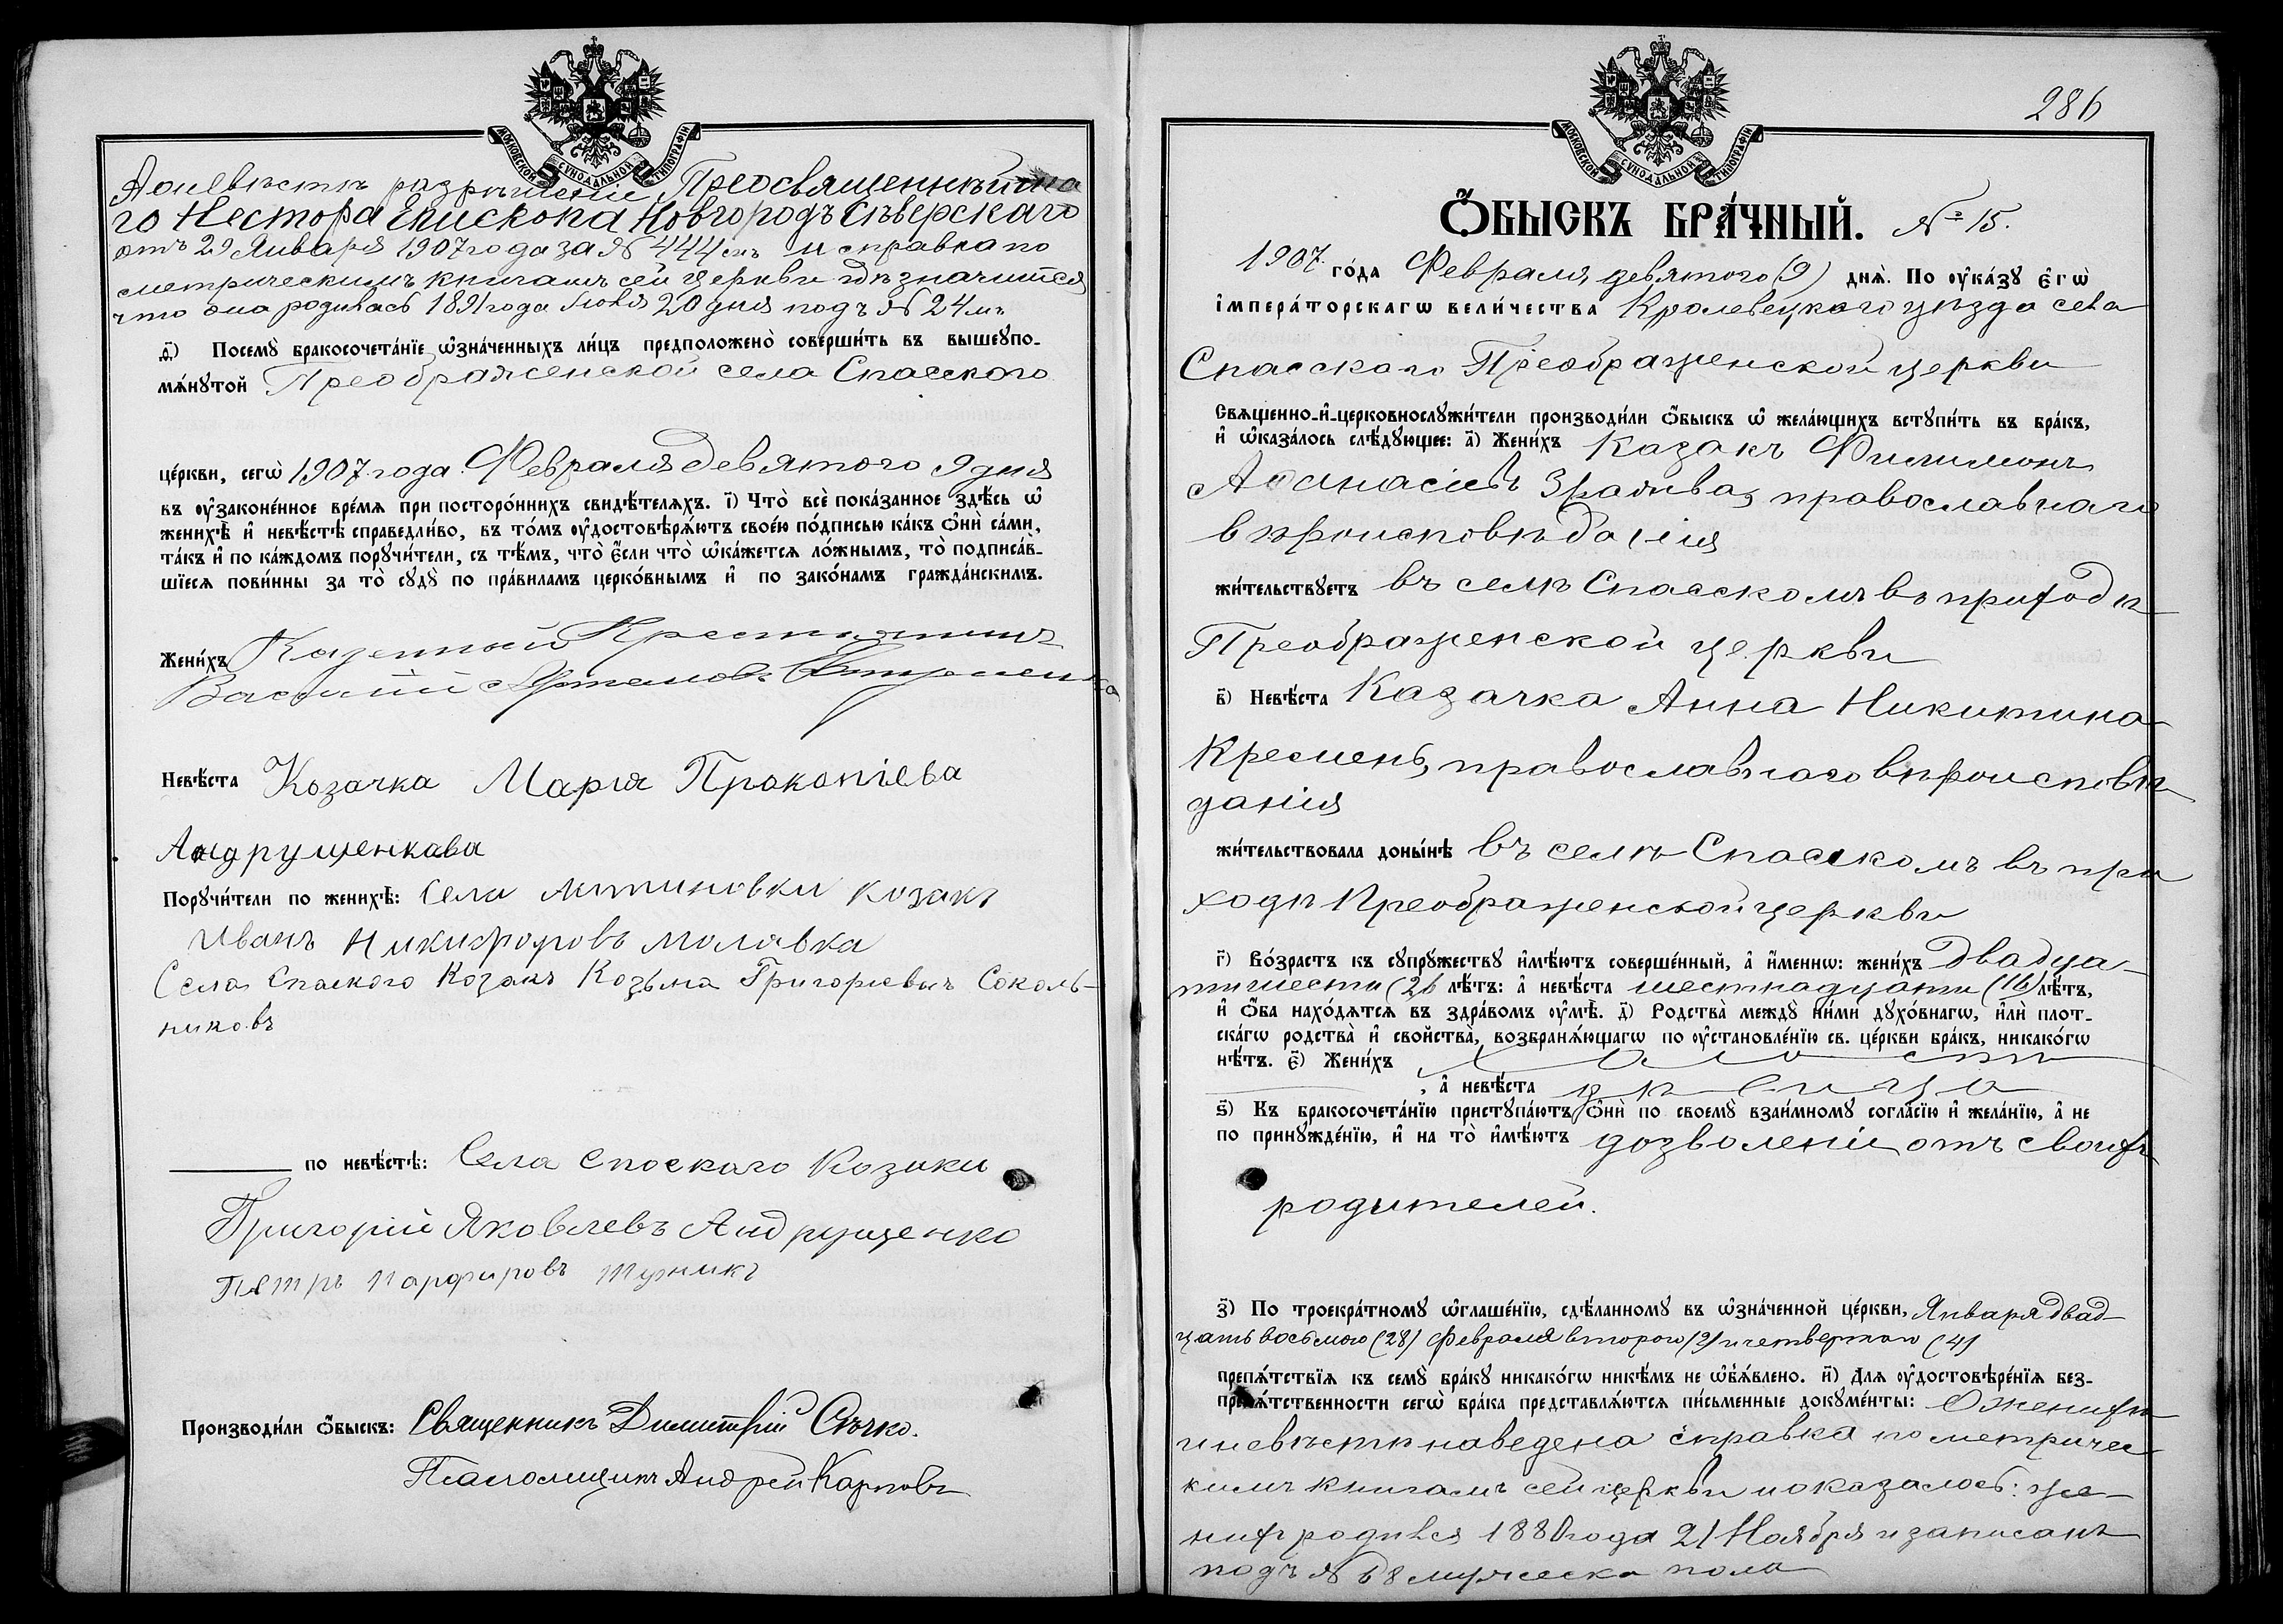 МОСКОВСКОЙ СѴНОДАЛЬНОЙ ТИПОГРАФІИ
А о невѣстѣ разрѣшеніе Преосвященнѣйша
го Нестора Епископа Новгородъ Сѣверскаго
отъ 29 Января 1907 года за № 444мъ и справка по
метрическимъ книгамъ сей церкви гдѣ значится
что она родилась 1891 года Іюля 20 дня подъ № 24мъ
ѳ҃) Посемꙋ̀ бракосочета́нїе ѡ҆зна́ченныхъ ли́цъ предположено̀ соверши́ть въ вышеꙋпо-
мѧ́нꙋтой Преображенской села Спасского
це́ркви, сегѡ̀ 1907 года Февраля девятого 9 дня
въ ᲂу҆зако́ненное вре́мѧ при посторо́ннихъ свидѣ́телѧхъ. і҃) Что̀ всѐ пока́занное здѣ́сь ѡ҆
женихѣ̀ и҆ невѣ́стѣ справедли́во, въ то́мъ ᲂу҆достовѣрѧ́ютъ свое́ю по́дписью ка́къ ѻ҆нѝ са́ми,
та́къ и҆ по ка́ждомъ порꙋчи́тели, съ тѣ́мъ, что̀ є҆́сли что̀ ѡ҆ка́жетсѧ ло́жнымъ, то̀ подписа́в-
шїесѧ пови́нны за то̀ сꙋдꙋ̀ по пра́виламъ церко́внымъ и҆ по зако́намъ гражда́нскимъ.
Жени́хъ Казенный Крестянинъ
Василий Артемовъ
Невѣ́ста Козачка Марія Прокопіева
Андрущенкава
Порꙋчи́тели по женихѣ̀: Села Литиновки козакъ
Иванъ Никифоровъ Молявка
Села Спаского Козакъ Козьма Григорьевичъ Соколь-
никовъ
по невѣ́стѣ: Села Споскаго Козаки
Григорій Яковлевъ Андрущенко
Петръ Парфировъ
Производи́ли ѻ҆́быскъ: Священникъ Димитрій Сѣчко.
Псаломщикъ Андрей Карповъ
286
МОСКОВСКОЙ СѴНОДАЛЬНОЙ ТИПОГРАФІИ
Ѻ҆́БЫСКЪ БРА́ЧНЫЙ. № 15.
1907 го́да Февраля девятого (9) днѧ̀. По ᲂу҆ка́зꙋ є҆гѡ̀
і҆мпера́торскагѡ вели́чества Кролевецкого уѣзда села
Спасского Преображенской церкви
Свѧще́нно-и҆-церковнослꙋжи́тели производи́ли ѻ҆́быскъ ѡ҆ жела́ющихъ встꙋпи́ть въ бра́къ,
и҆ ѡ҆каза́лось слѣ́дꙋющее: а҃) Жени́хъ Казакъ Филимонъ
Аѳанасіевъ православнаго
вѣроисповѣданія
жи́тельствꙋетъ въ селѣ Спасскомъ въ приходѣ
Преображенской церкви
в҃) Невѣ́ста Казачка Анна Никитина
Кремень, православнаго вѣроисповѣ
данія
жи́тельствовала доны́нѣ въ селѣ Спасскомъ въ при
ходѣ Преображенской церкви
г҃) Во́зрастъ къ сꙋпрꙋ́жествꙋ и҆мѣ́ютъ соверше́нный, а҆ и҆́менно: жени́хъ двадца-
тишести (26 лѣ́тъ: а҆ невѣ́ста шестнадцати (16) лѣ́тъ,
и҆ ѻ҆́ба нахо́дѧтсѧ въ здра́вомъ ᲂу҆мѣ̀. д҃) Родства̀ междꙋ̀ ни́ми дꙋхо́внагѡ, и҆лѝ плот-
ска́гѡ родства̀ и҆ сво́йства̀, возбранѧ́ющагѡ по ᲂу҆становле́нїю св. це́ркви бра́къ, никако́гѡ
нѣ́тъ. є҃) Жени́хъ холостъ
, а҆ невѣ́ста дѣвица
ѕ҃) Къ бракосочета́нїю пристꙋпа́ютъ ѻ҆нѝ по своемꙋ̀ взаи́мномꙋ согла́сїю и҆ жела́нїю, а҆ не
по принꙋжде́нїю, и҆ на то̀ и҆мѣ́ютъ дозволеніе отъ своихъ
родителей.
з҃) По троекра́тномꙋ ѡ҆глаше́нїю, сдѣ́ланномꙋ въ ѡ҆зна́ченной це́ркви, Января двад-
цать восьмого (28) Февраля второго (2) и четвертого (4)
препѧ́тствїѧ къ семꙋ̀ бра́кꙋ никако́гѡ никѣ́мъ не ѡ҆б̾ѧ́влено. и҃) Для ᲂу҆достовѣре́нїѧ без-
препѧ́тственности сегѡ̀ бра́ка представлѧ́ютсѧ пи́сьменные докꙋме́нты: О женихѣ
и невѣстѣ наведена справка по метричес-
кимъ книгамъ сей церкви и оказалось: же-
нихъ родился 1880 года 21 Ноября и записанъ
подъ № 68 мужеска пола